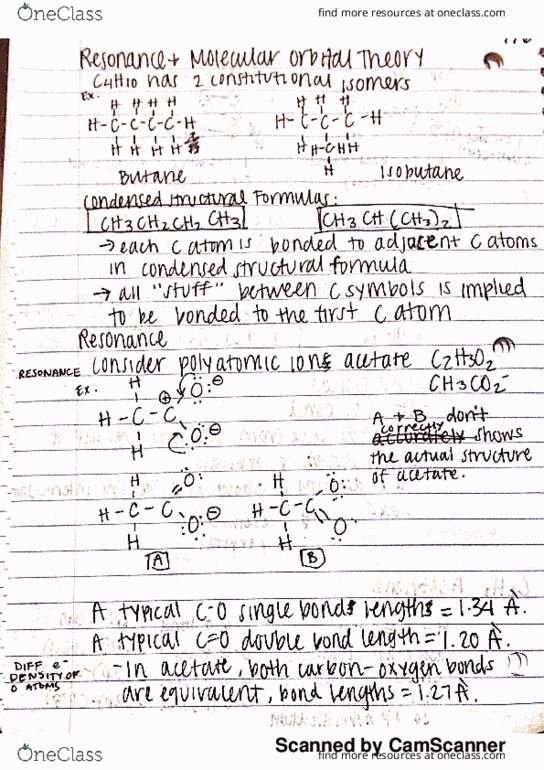 OneClass
find more resources at oneclass.com
Resonance + Molecular orbital Theory
C4H10 has 2 constitutional isomers
Ex.
H H H H
H-C-C-C-C-H
H H H H
H H H
H-C-C-C-H
H H-C-H H
H
Butane
Isobutane
Condensed structural Formulas:
CH3CH2CH2CH3
CH3CH(CH3)2
→ each C atom is bonded to adjacent C atoms
in condensed structural formula
→ all "stuff" between C symbols is implied
to be bonded to the first C atom
Resonance
RESONANCE
Consider polyatomic ions acetate C2H3O2
CH3CO2-
Ex.
H
⊕ :O: ⊖
H-C-C
:O: ⊖
H
A + B don't
correctly
accurately shows
the actual structure
of acetate.
H
O:
H-C-C
:O: ⊖
H
A
H
O:
H-C-C
O:
H
B
A typical C-O single bonds lengths = 1.34 Å.
A typical C=O double bond length = 1.20 Å.
DIFF e-
DENSITY OF
O ATOMS
-In acetate, both carbon-oxygen bonds
are equivalent, bond lengths = 1.27Å.
Scanned by CamScanner
OneClass
find more resources at oneclass.com